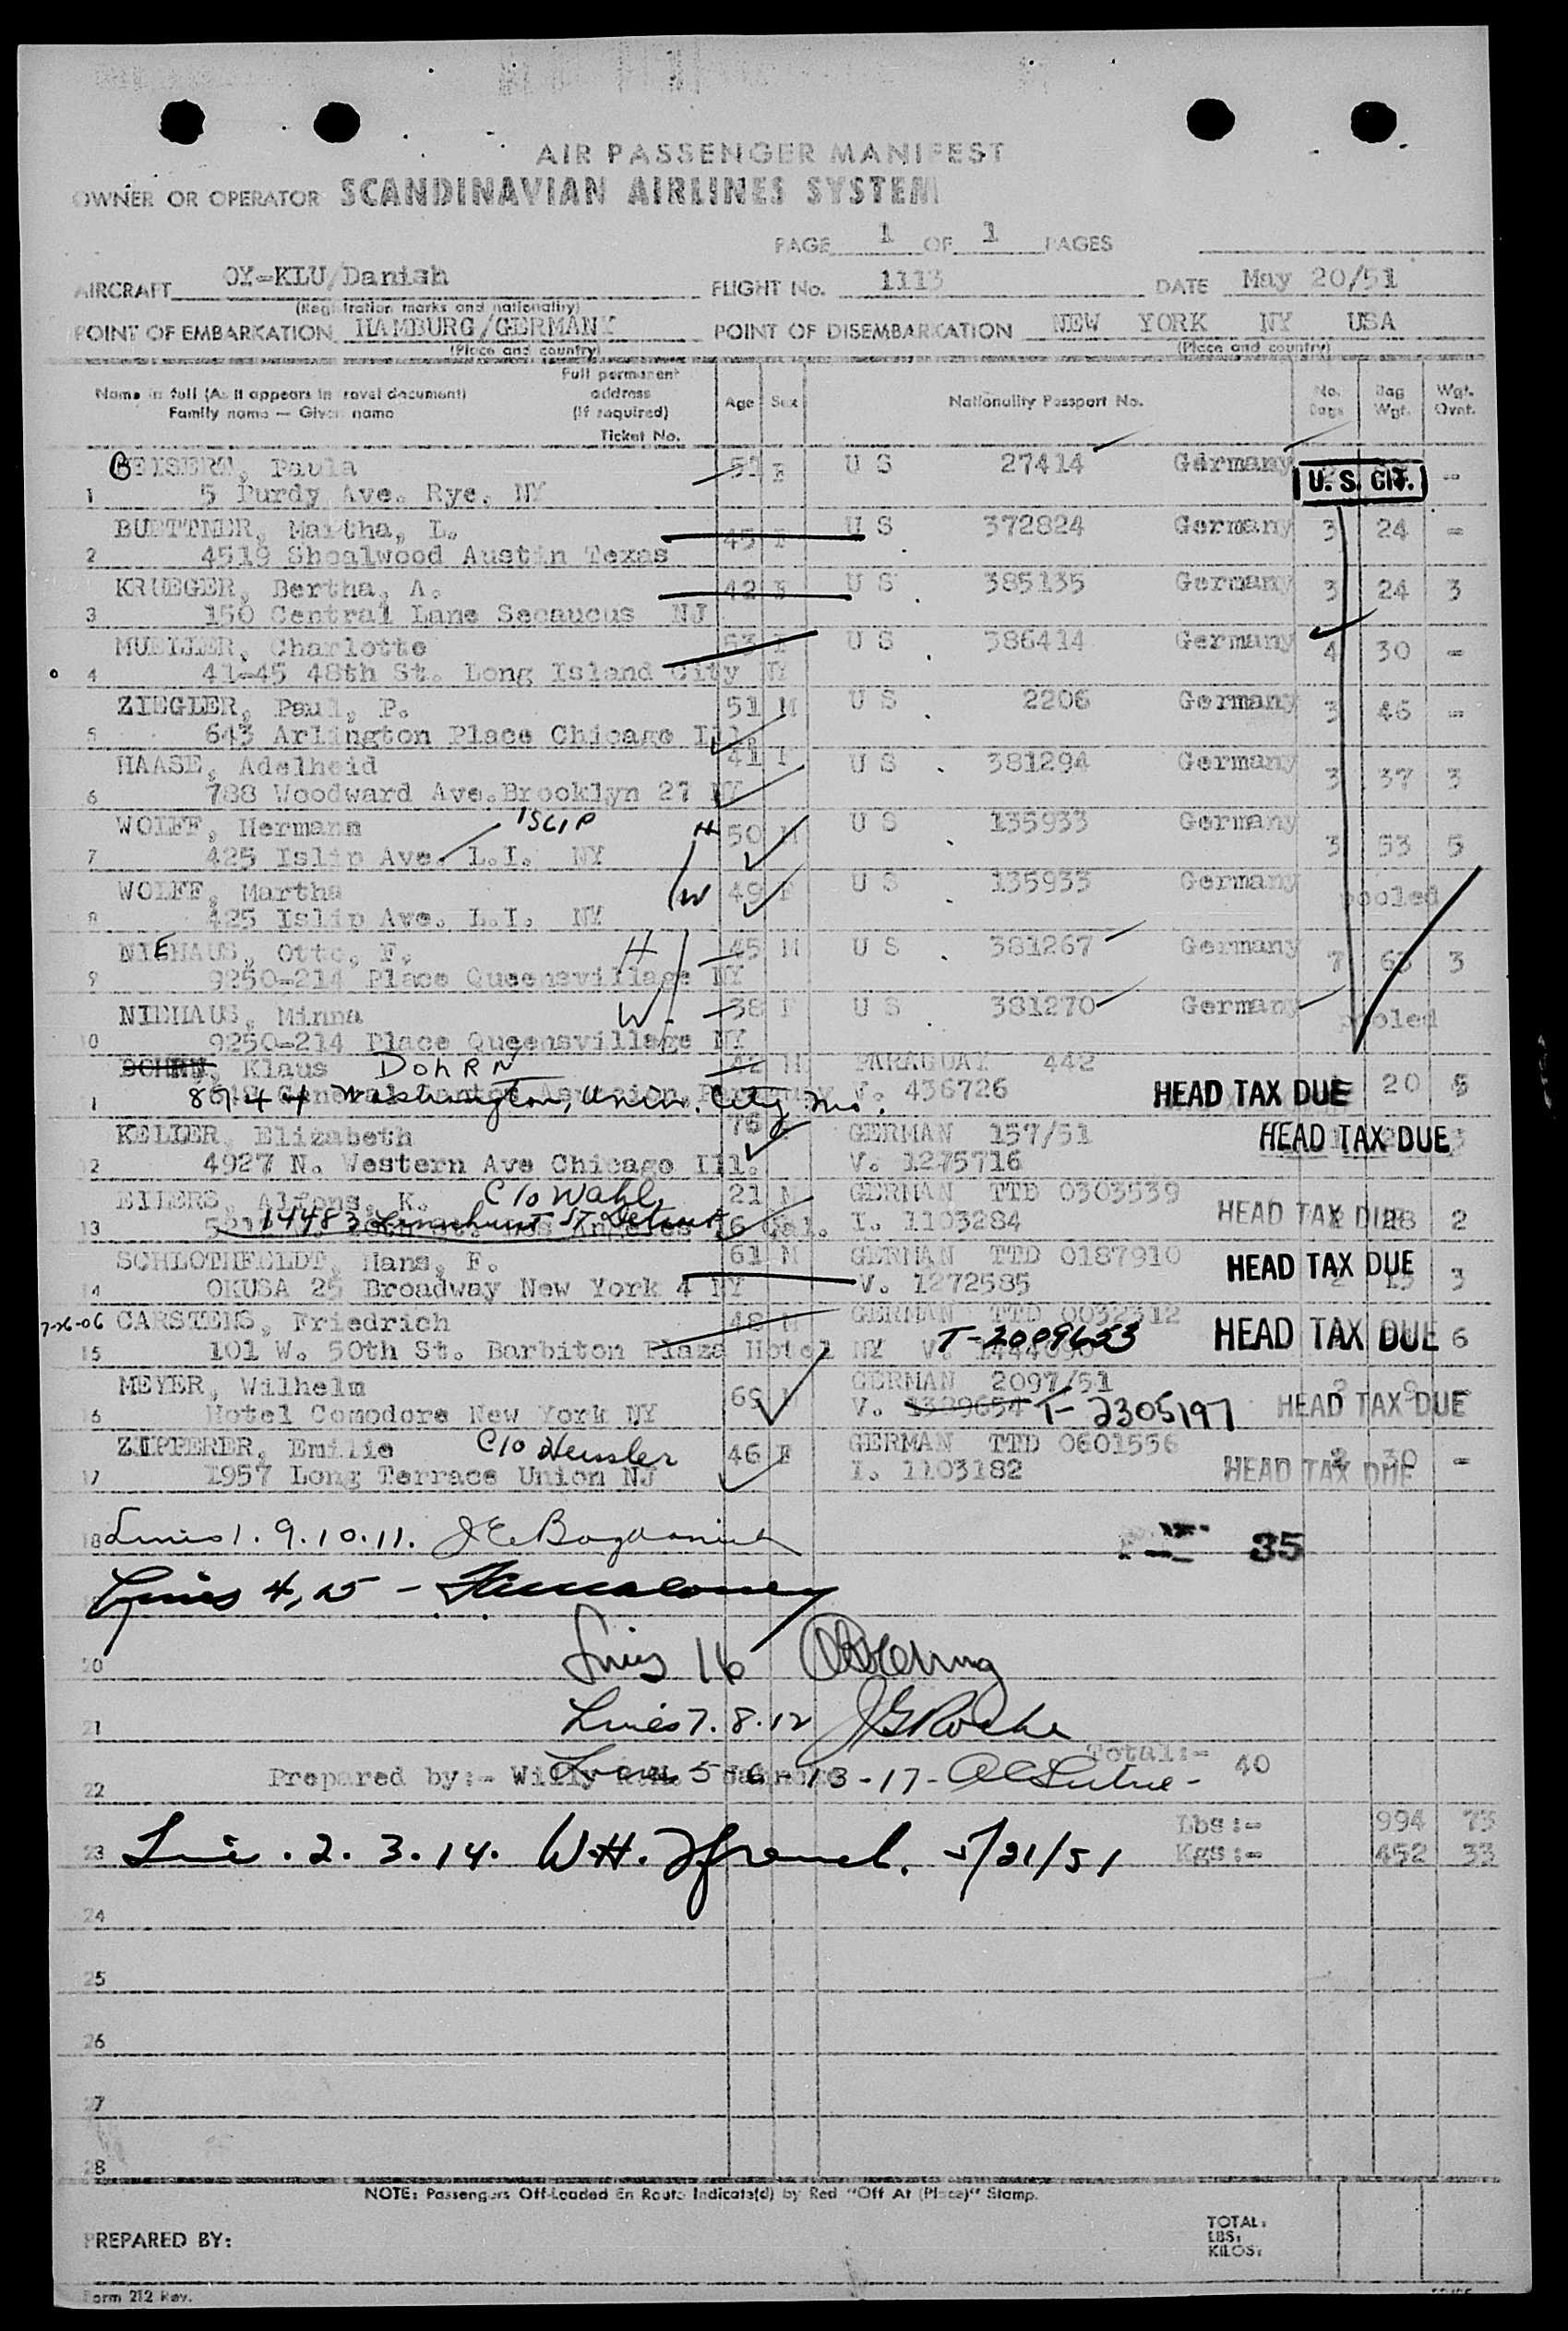 AIR PASSENGER MANIFEST
OWNER OR OPERATOR SCANDINAVIAN AIRLINES SYSTEM
PAGE 1 OF 1 PAGES
AIRCRAFT OY-KLU/Danish FLIGHT No. 1113 DATE May 20/51
(Registration marks and nationality)
POINT OF EMBARKATION HAMBURG/GERMANY POINT OF DISEMBARCATION NEW YORK NY USA
(Place and country) (Place and country)
Name in full (As it appears in travel document) Family name — Given name Full permanent address (if required) Ticket No. Age Sex Nationality Passport No. No. Bags Bag Wgt. Wgt. Ovnt.
BEISERT, Paula 51 F U S 27414 Germany U. S. CIT. -
1 5 Purdy Ave. Rye, NY
BUETTNER, Martha, L. 45 F U S 372824 Germany 3 24 -
2 4519 Shoalwood Austin Texas
KRUEGER, Bertha, A. 42 F U S 385135 Germany 3 24 3
3 150 Central Lane Secaucus NJ
MUELLER, Charlotte 53 F U S 386414 Germany 4 30 -
4 41-45 48th St. Long Island City NY
ZIEGLER, Paul, P. 51 M U S 2206 Germany 3 46 -
5 643 Arlington Place Chicago Ill.
HAASE, Adelheid 41 F U S 381294 Germany 3 37 3
6 788 Woodward Ave.Brooklyn 27 NY
WOLFF, Hermann ISLIP H 50 M U S 135933 Germany 3 53 5
7 425 Islip Ave. L.I. NY
WOLFF, Martha W 49 F U S 135933 Germany pooled
8 425 Islip Ave. L.I. NY
NIEHAUS, Otto, F. H 45 M U S 381267 Germany 7 63 3
9 9250-214 Place Queensvillage NY
NIEHAUS, Minna W. 38 F U S 381270 Germany pooled
10 9250-214 Place Queensvillage NY
DOHRN, Klaus DohRN 42 M PARAGUAY 442
1 8744 Washington, Univ. City Mo. V. 436726 HEAD TAX DUE 20 6
KELLER, Elizabeth 76 F GERMAN 157/51 HEAD TAX DUE
12 4927 N. Western Ave Chicago Ill. V. 1275716
EILERS, Alfons, K. C/o Wahl 21 M GERMAN TTD 0303539
13 14483 St Detroit Los Angeles Cal. I. 1103284 HEAD TAX DUE 28 2
SCHLOTHFELDT, Hans, F. 61 M GERMAN TTD 0187910 HEAD TAX DUE 3
14 OKUSA 25 Broadway New York 4 NY V. 1272585
7-26-06 CARSTENS, Friedrich 48 M GERMAN TTD 0032312
15 101 W. 50th St. Barbiton Plaza Hotel NY V. T-2009653 HEAD TAX DUE 6
MEYER, Wilhelm 69 M GERMAN 2097/51
16 Hotel Comodore New York NY V. 1339654 T-2305197 HEAD TAX DUE
ZIPPERER, Emilie C/o Heusler 46 F GERMAN TTD 0601556 2 30 -
17 1957 Long Terrace Union NJ I. 1103182 HEAD TAX DUE
18 Lines 1. 9. 10. 11.
35
Lines 4, 15 -
20 Lines 16
21 Lines 7. 8. 12 JG Roche
Total:- 40
22 Prepared by:- Willy Lines 5-6-13-17-
Lbs:- 994 73
23 Line. 2. 3. 14. W.H. French. 5/21/51 Kgs:- 452 33
24
25
26
27
28
NOTE: Passengers Off-Loaded En Route Indicate(d) by Red "Off At (Place)" Stamp.
PREPARED BY:
TOTAL:
LBS:
KILOS:
Form 212 Rev.